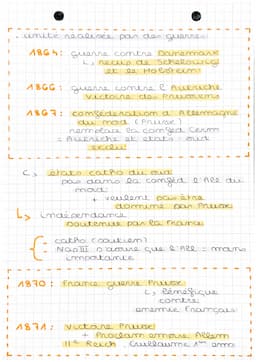 . unité réalisée par des guerres:
1864: guerre contre Danemark
↳ recup de Schelswig
et le Holstein
1866: guerre contre l'Autriche
victoire de Prussiens
1867: confédération d'Allemagne
du nord (Prusse)
remplace la confed Germ
Autriche et états-sud
exclu
états catho du sud
pas dans la confed. l'All du
nord
+ veulent pas être
dominé par Prusse
↳ indépendance
soutenue par la France
- catho (soutien)
- Nap III s'assure que l'All = moins
importante
1870: France guerre Prusse
↳ bénéfique
contre
ennemie Français
1871: victoire Prusse
+ Proclam
IIe Reich Guillaume 1er